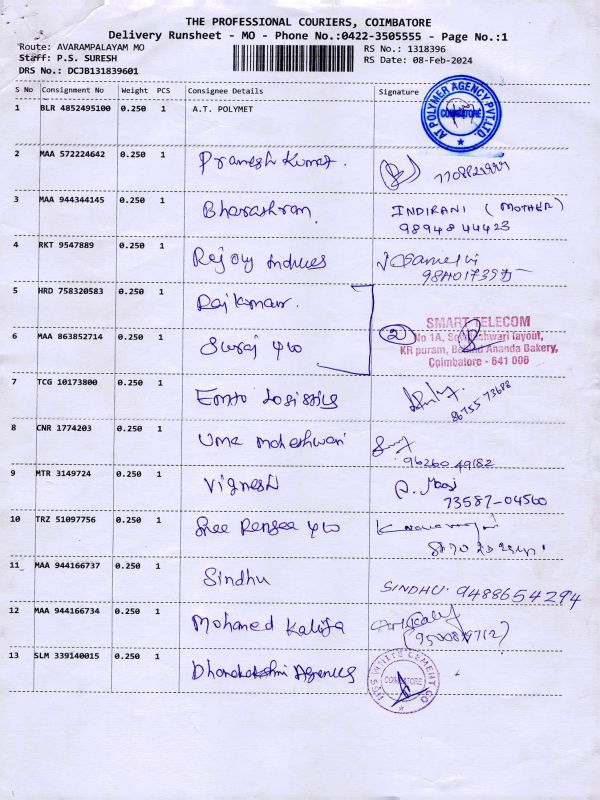 THE PROFESSIONAL COURIERS, COIMBATORE
Delivery Runsheet - MO - Phone No.:0422-3505555 - Page No.:1
Route: AVARAMPALAYAM MO
RS No.: 1318396
Staff: P.S. SURESH
RS Date: 08-Feb-2024
DRS No.: DCJB131839601
S No Consignment No Weight PCS Consignee Details Signature
1 BLR 4852495100 0.250 1 A.T. POLYMET
AT POLYMER AGENCY PVT LTD
COIMBATORE
2 MAA 572224642 0.250 1 Pramesh Kumar.
3 MAA 944344145 0.250 1 Bharathram. INDIRANI (MOTHER)
98948 44423
4 RKT 9547889 0.250 1
5 HRD 758320583 0.250 1 Rajkumar.
6 MAA 863852714 0.250 1 Suraj
2
SMART TELECOM
No 1A, layout,
KR puram, Behind Ananda Bakery,
Coimbatore - 641 006
7 TCG 10173800 0.250 1 Logistics
86755 73688
8 CNR 1774203 0.250 1 Uma Maheshwari
96260 49182
9 MTR 3149724 0.250 1 Vignesh
73587-04560
10 TRZ 51097756 0.250 1 Sree
11 MAA 944166737 0.250 1 Sindhu SINDHU. 9488654294
12 MAA 944166734 0.250 1 Mohamed Kalifa
13 SLM 339140015 0.250 1 Agencies
WHITE CEMENT CO
COIMBATORE